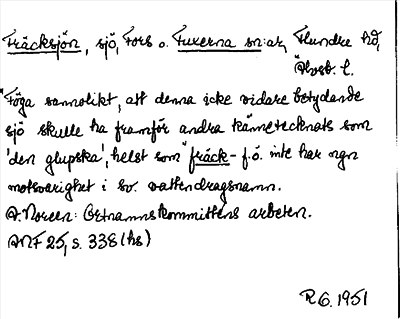 Fräcksjön, sjö, Fors o. Fuxerna sn:ar, Flundre hd,
Älvsb. l.
"Föga sannolikt, att denna icke vidare betydande
sjö skulle ha framför andra kännetecknats som
'den glupska', helst som fräck- f.ö. inte har ngn
motsvarighet i sv. vattendragsnamn."
A. Noreen: Ortnamnskommittens arbeten.
ANF 25, s. 338 (hs)
R G. 1951